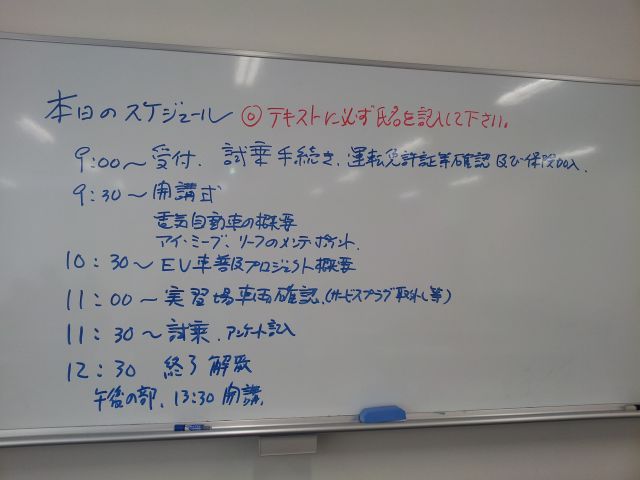 本日のスケジュール ◎テキストに必ず氏名を記入して下さい。
9:00〜受付、試乗手続き、運転免許証等確認及び保険加入、
9:30〜開講式
電気自動車の概要
アイ・ミーブ、リーフのメンテポイント、
10:30〜EV車普及プロジェクト概要
11:00〜実習場車両確認、(サービスプラグ取外し等)
11:30〜試乗、アンケート記入
12:30 終了解散
午後の部、13:30開講、